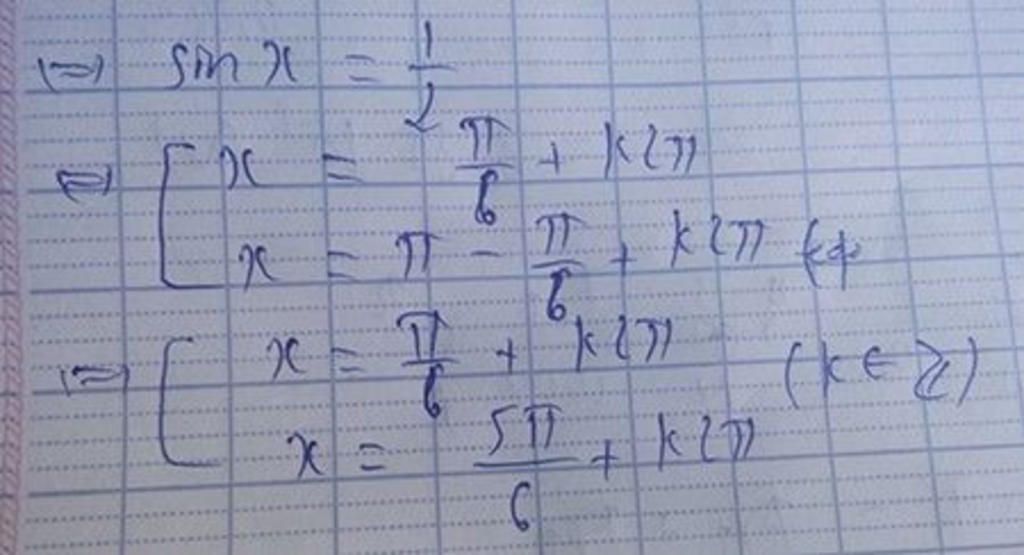 ⇔ sin x = 1/2
⇔ [ x = π/6 + k2π
x = π - π/6 + k2π
⇔ [ x = π/6 + k2π (k ∈ ℤ)
x = 5π/6 + k2π